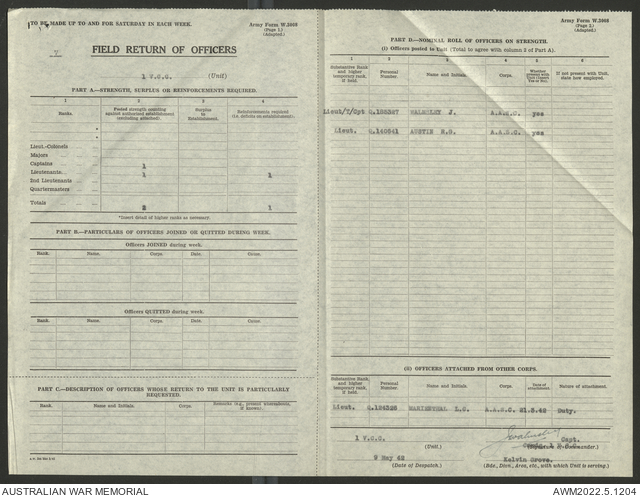 TO BE MADE UP TO AND FOR SATURDAY IN EACH WEEK.
Army Form W.3008
(Page 1.)
(Adapted.)
FIELD RETURN OF OFFICERS
1 V.C.C. (Unit)
PART A.—STRENGTH, SURPLUS OR REINFORCEMENTS REQUIRED.
1 2 3 4
Ranks. Posted strength counting against authorised establishment (excluding attached). Surplus to Establishment. Reinforcements required (i.e. deficits on establishment).
Lieut.-Colonels
Majors
Captains 1
Lieutenants 1 1
2nd Lieutenants
Quartermasters
Totals 2 1
*Insert detail of higher ranks as necessary.
PART B.—PARTICULARS OF OFFICERS JOINED OR QUITTED DURING WEEK.
Officers JOINED during week.
Rank. Name. Corps. Date. Cause.
Officers QUITTED during week.
Rank. Name. Corps. Date. Cause.
PART C.—DESCRIPTION OF OFFICERS WHOSE RETURN TO THE UNIT IS PARTICULARLY REQUESTED.
Rank. Name and Initials. Corps. Remarks (e.g., present whereabouts, if known).
Army Form W.3008
(Page 2.)
(Adapted.)
PART D.—NOMINAL ROLL OF OFFICERS ON STRENGTH.
(i) Officers posted to Unit (Total to agree with column 2 of Part A).
1 2 3 4 5 6
Substantive Rank and higher temporary rank, if held. Personal Number. Name and Initials. Corps. Whether present with Unit (insert Yes or No). If not present with Unit, state how employed.
Lieut/T/Cpt J. A.A.S.C. yes
Lieut. AUSTIN A.A.S.C. yes
(ii) OFFICERS ATTACHED FROM OTHER CORPS.
1 2 3 4 5 6
Substantive Rank and higher temporary rank, if held. Personal Number. Name and Initials. Corps. Date of attachment. Nature of attachment.
Lieut. L.C. A.A.S.C. Duty.
1 V.C.C. (Unit.)
Capt.
9 May 42
(Date of Despatch.)
Kelvin Grove.
(Bde., Divn., Area, etc., with which Unit is serving.)
AUSTRALIAN WAR MEMORIAL
AWM2022.5.1204